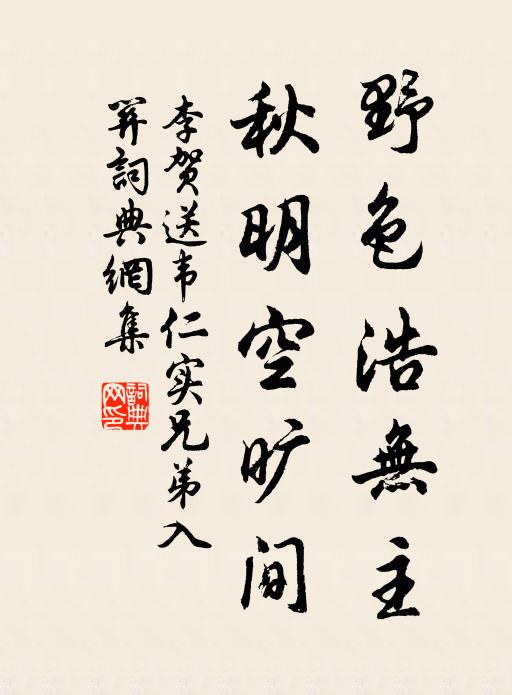 野色浩無主
秋明空旷间
李贺送韦仁实兄弟入
关詞典網集
詞典网印